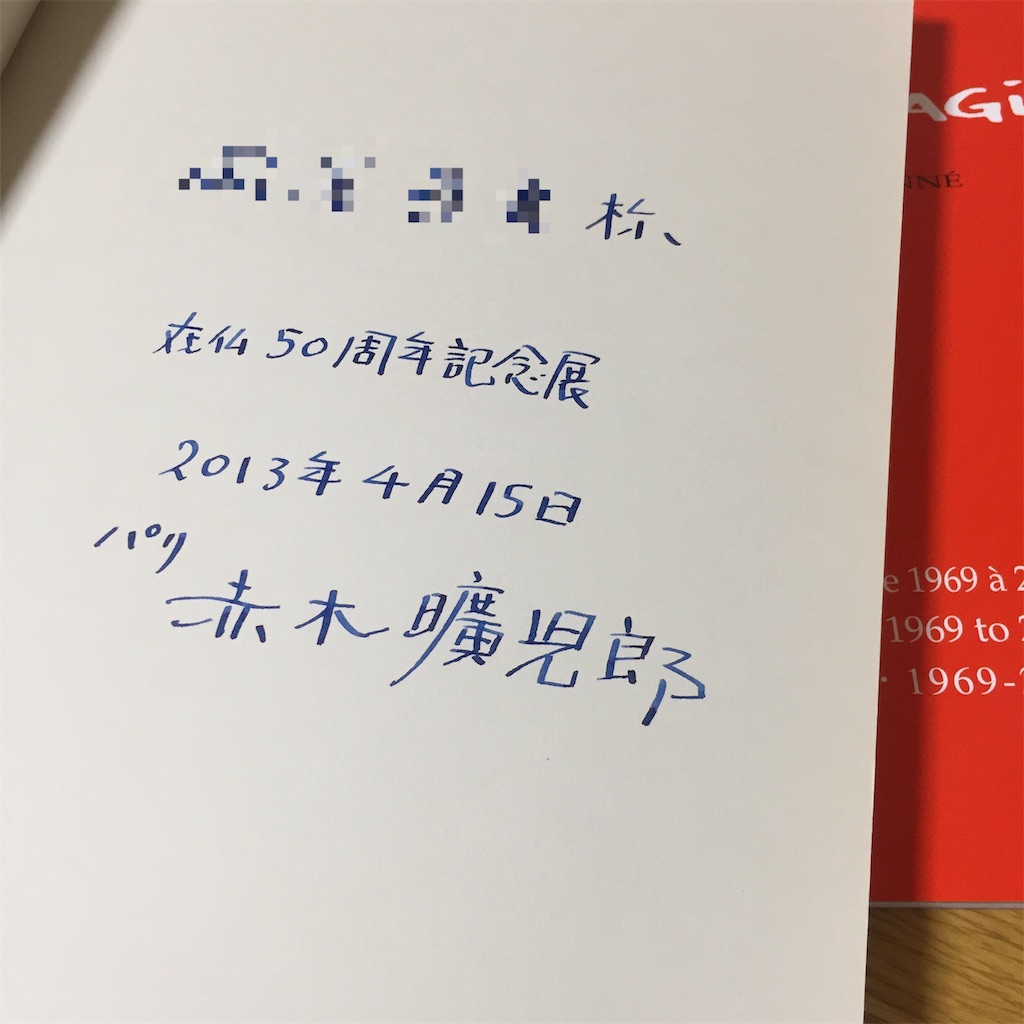 様、
在仏50周年記念展
2013年4月15日
パリ
赤木曠児郎
AGi
NNÉ
e 1969 à 2
1969 to 2
· 1969-2